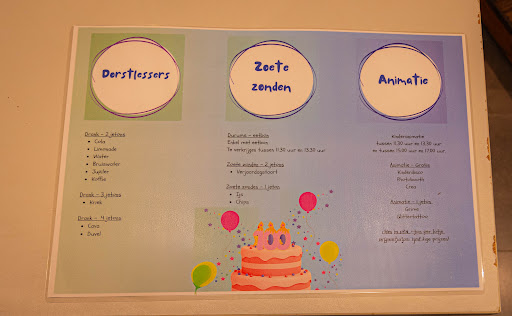 Dorstlessers
Drank - 2 jetons
Cola
Limonade
Water
Bruiswater
Jupiler
Koffie
Drank - 3 jetons
Kriek
Drank - 4 jetons
Cava
Duvel
Zoete
zonden
Durums - eetbon
Enkel met eetbon
Te verkrijgen tussen 11.30 uur en 13.30 uur
Zoete zonden - 2 jetons
Verjaardagstaart
Zoete zonden - 1 jeton
Ijs
Chips
100
Animatie
Kinderanimatie
tussen 11.30 uur en 13.30 uur
en tussen 15.00 uur en 17.00 uur
Animatie - Gratis
Kinderdisco
Photobooth
Animatie - 1 jeton
Grime
Glittertattoo